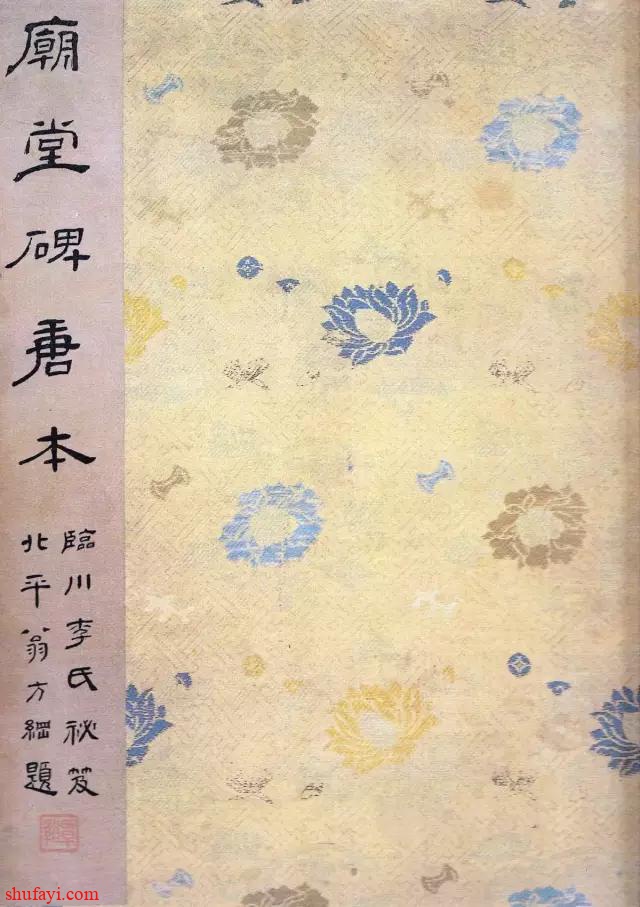 廟堂碑唐本
臨川李氏祕笈
北平翁方綱題
shufayi.com